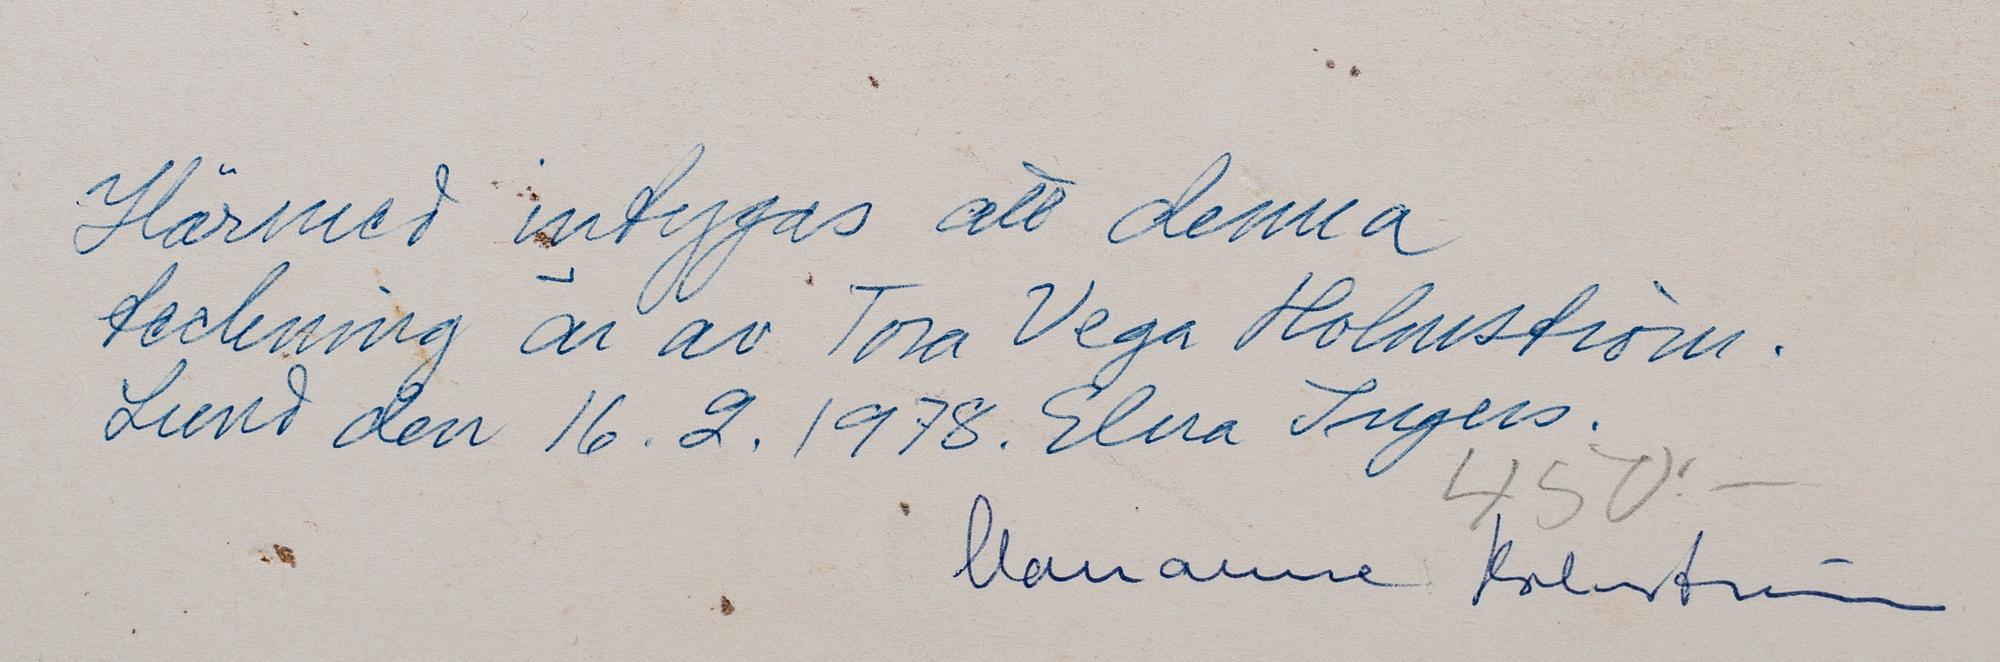 Härmed intygas att denna
teckning är av Tora Vega Holmström.
Lund den 16.2.1978. Elna Ingers.
450:-
Marianne Holmström